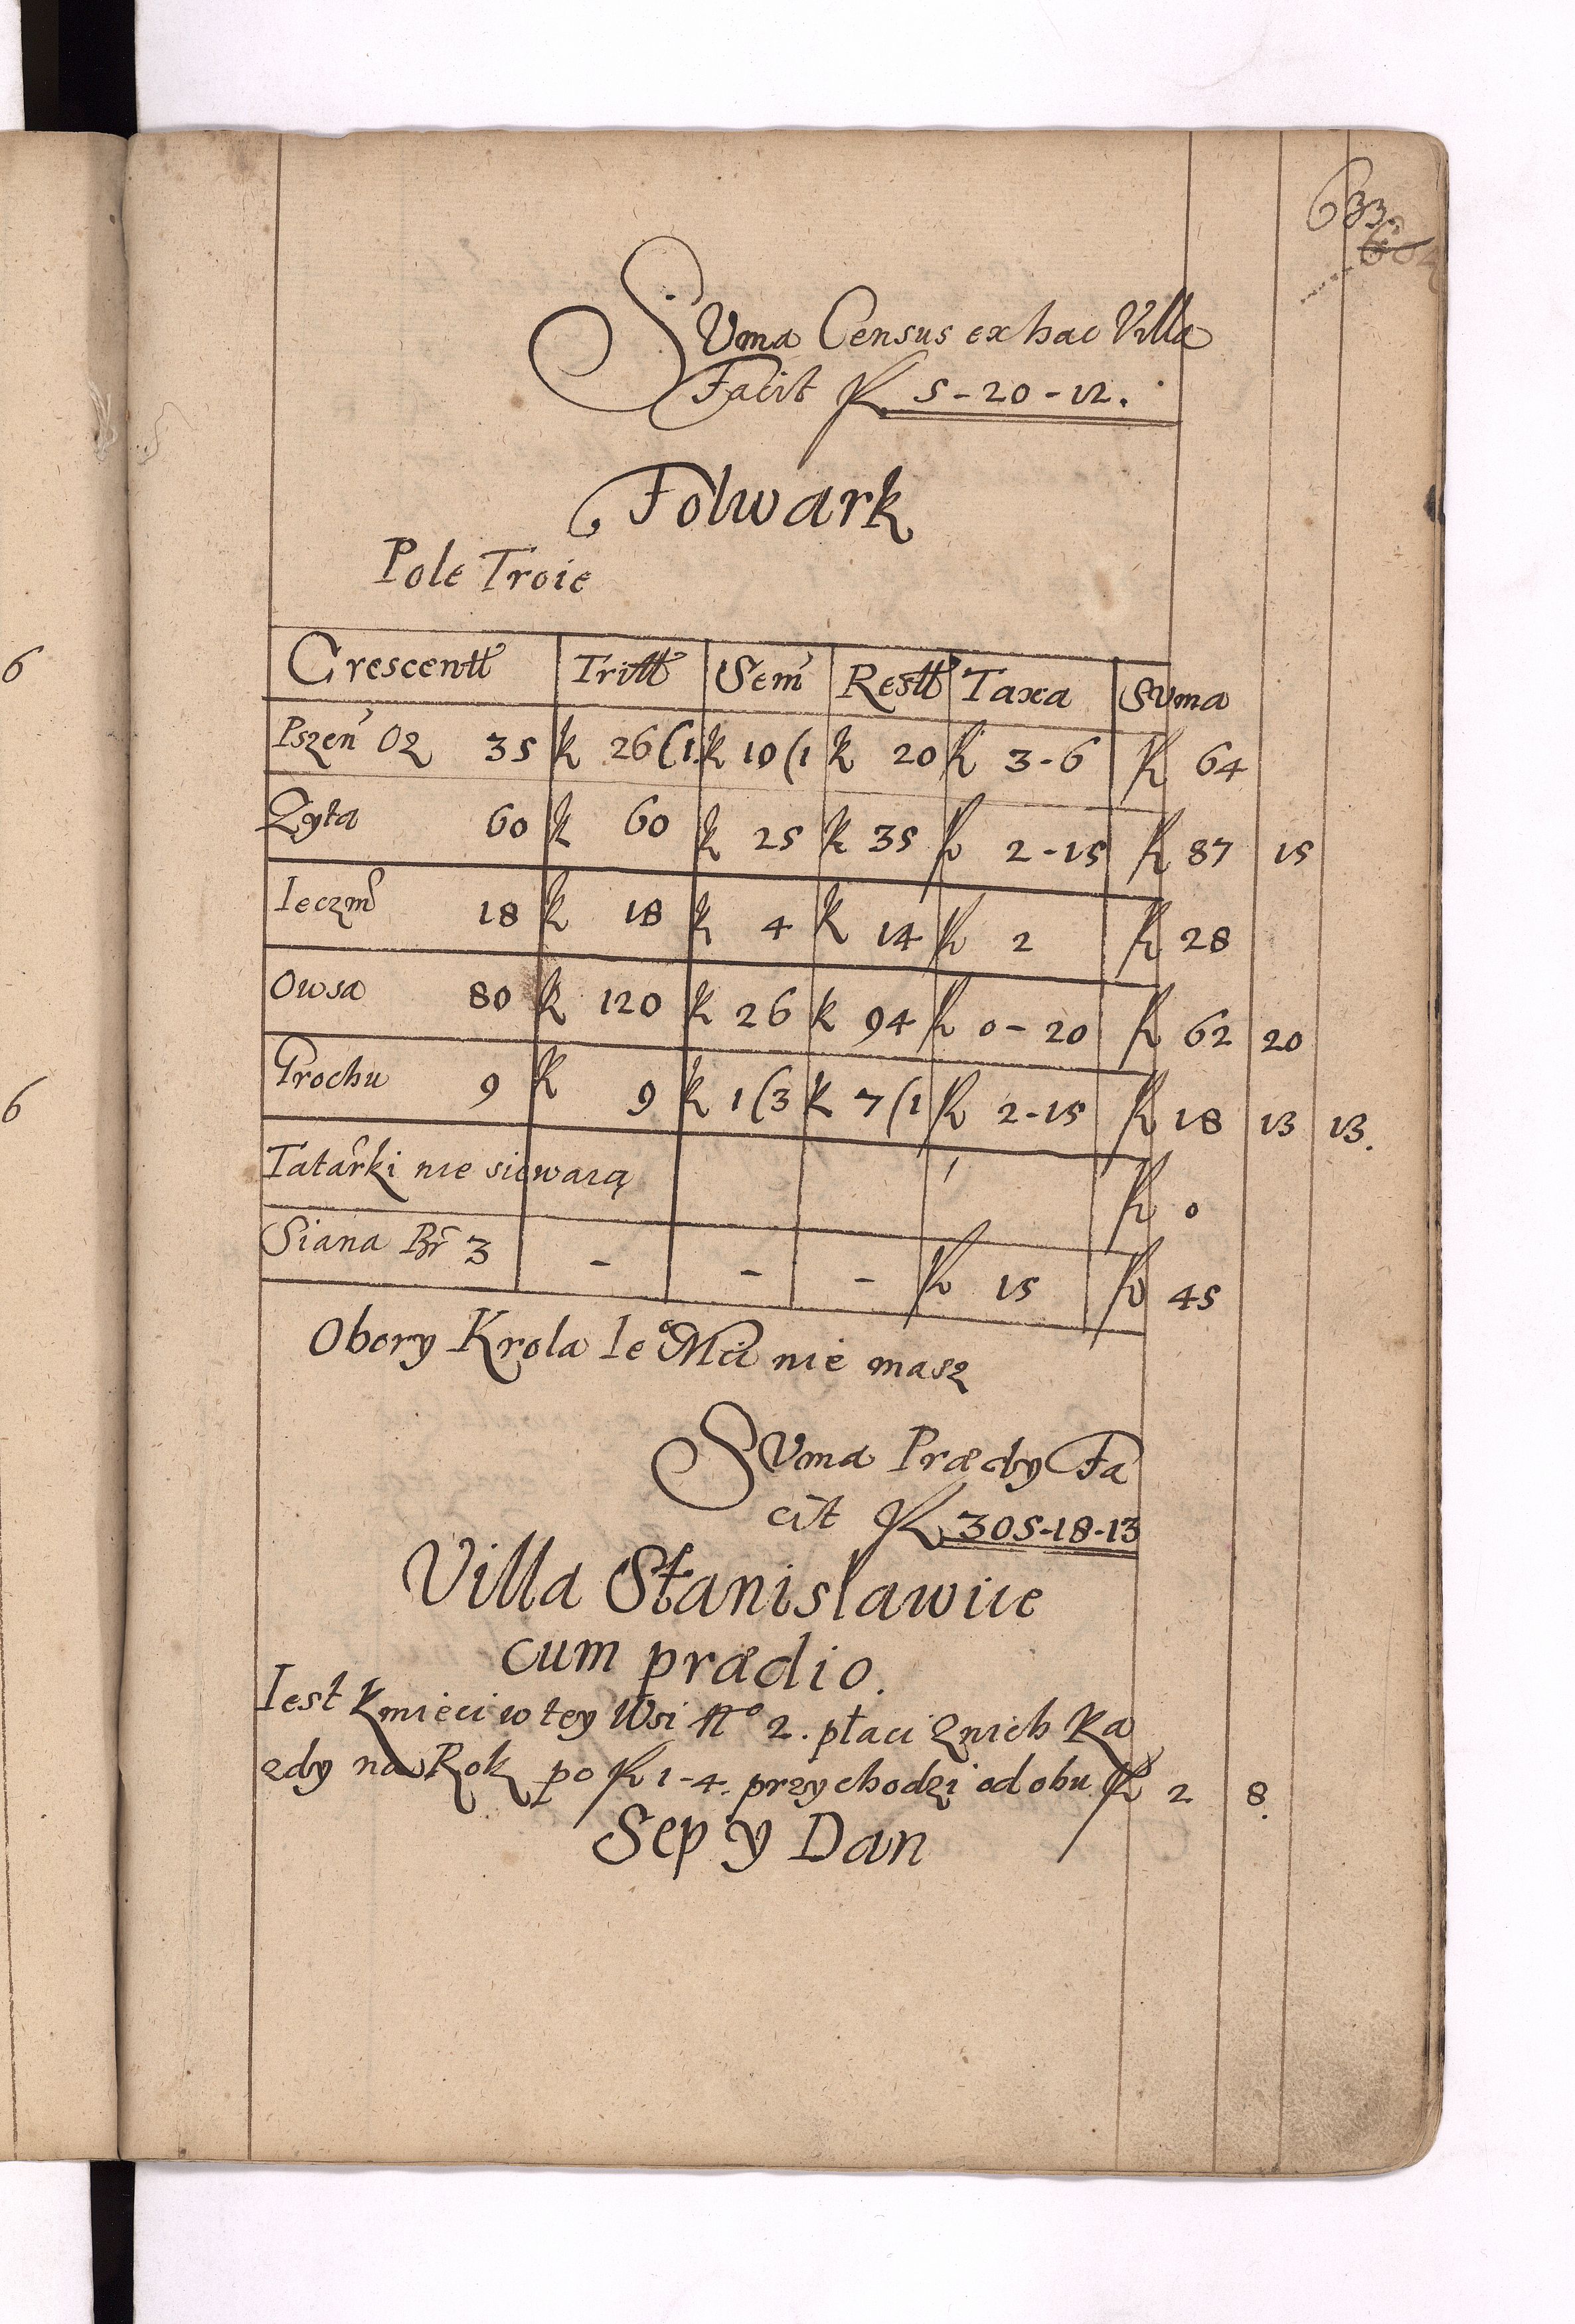 633.
604
SVma Census ex hac Villa
Facit fl. 5-20-12.
Folwark
Pole Troie
Crescentt Tritt Sem Restt Taxa SVma
Pszen Oz 35 k 26(1. k 10(1 k 20 fl 3-6 fl 64
Zyta 60 k 60 k 25 k 35 fl 2-15 fl 87 15
Ieczm 18 k 18 k 4 k 14 fl 2 fl 28
Owsa 80 k 120 k 26 k 94 fl 0-20 fl 62 20
Grochu 9 k 9 k 1(3 k 7(1 fl 2-15 fl 18 13 13.
Tatarki nie siewaią fl 0
Siana Br 3 - - - fl 15 fl 45
Obory Krola Ieo Mci nie masz
SVma Prædy Fa
cit fl 305-18-13
Villa Stanislawice
cum prædio.
Iest Kmieci w tey Wsi No 2. płaci znich Ka
zdy na Rok po fl 1-4. przychodzi od obu fl 2 8.
Sep y Dan
6
6